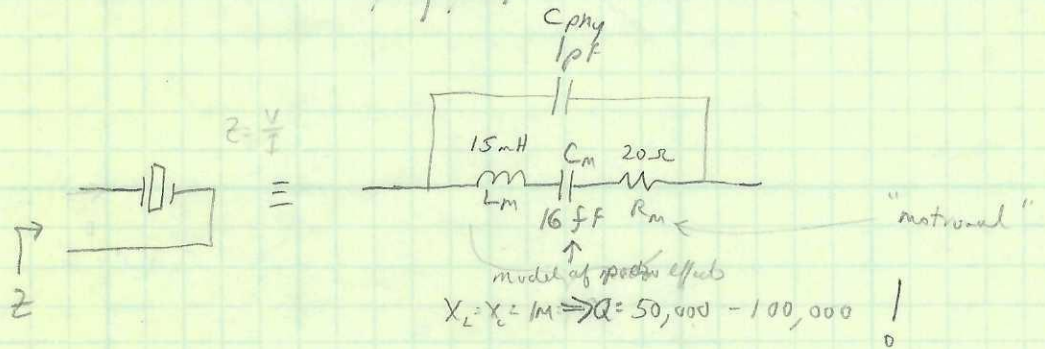 C phy
1pF
Z = V/I
15mH C_M 20Ω
≡
L_M R_M
16 fF
"motional"
model of effects
Z
X_L = X_C = 1M ⇒ Q = 50,000 - 100,000 !